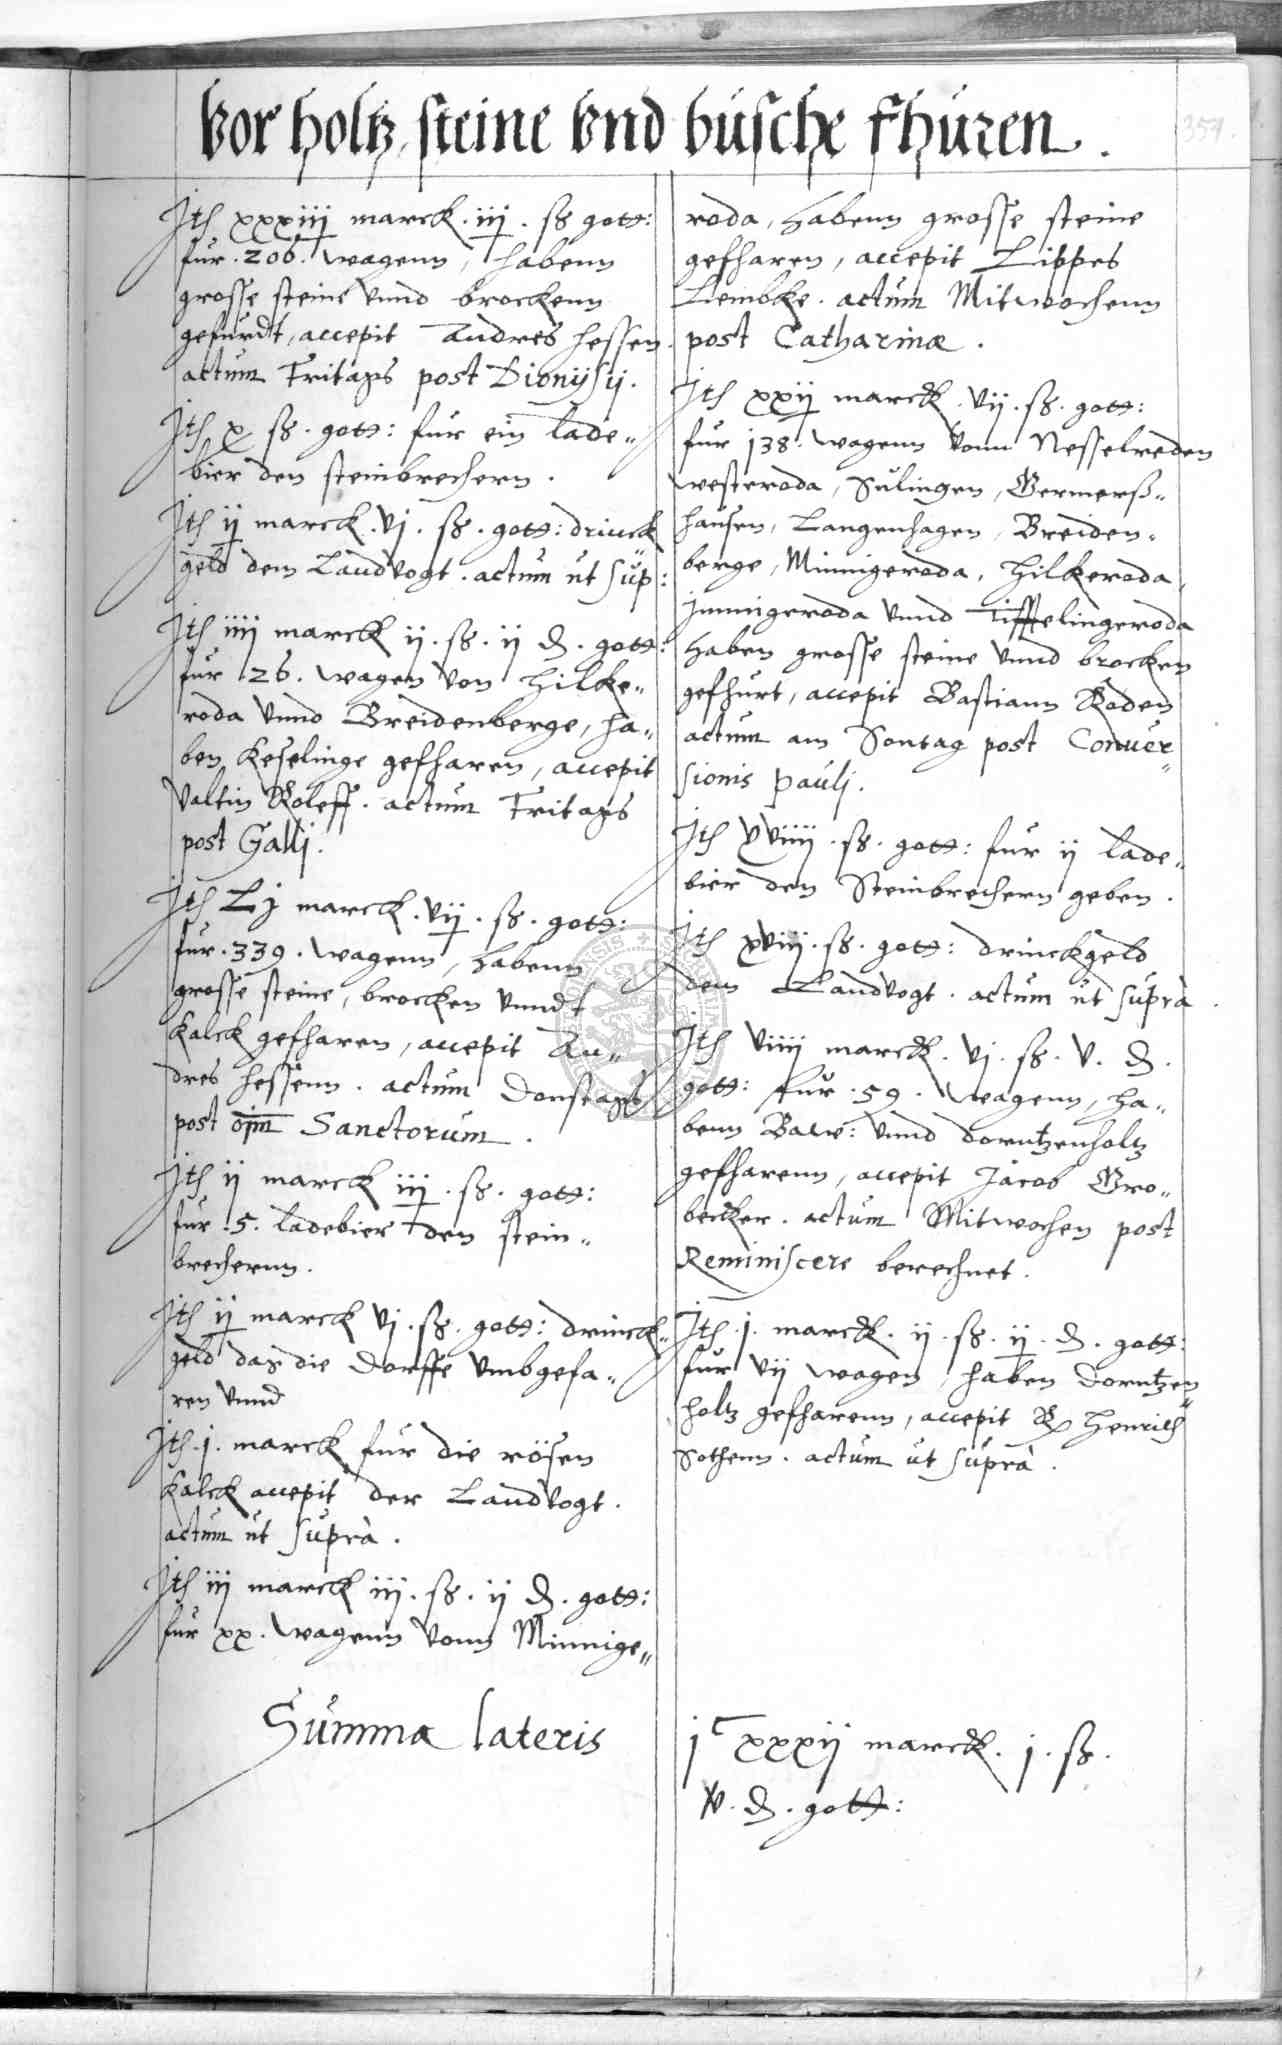 Vor holtz, steine Vnd büsche fhüren.
357.
Ith xxxiij marck. iij. ß gott:
fur. 206. wagenn, habenn
grosse steine vnnd brockenn
gefurdt, accepit Andres Hessen.
actum Fritags post Dionÿsij.
Ith x ß. gott: fur ein lade„
bier den steinbrechern.
Ith ij marck. vj. ß. gott: drinck
geld dem Landvogt. actum ut sup:
Ith iiij marck ij. ß. ij d. gott:
fur 26. wagen von Hilke„
roda vnnd Breidenberge, ha„
ben Keselinge gefharen, accepit
Valtin Roleff. actum Fritags
post Galli.
Ith Lj marck. vij. ß. gott:
fur. 339. wagenn, habenn
grosse steine, brocken vnndt
Kalck gefharen, accepit An„
dres Hessenn. actum Donstags
post oīm Sanctorum.
Ith ij marck iij. ß. gott:
fur. 5. ladebier den stein„
brechernn.
Ith ij marck vj. ß. gott: drinck„
geld das die Dorffe vmbgefa„
ren vnnd
Ith. j. marck fur die rösen
Kalck accepit der Landvogt.
actum ut suprà.
Ith iij marck iij. ß. ij d. gott:
fur xx. wagenn vonn Minnige„
roda, habenn grosse steine
gefharen, accepit Lippes
Lembke. actum Mitwochenn
post Catharinæ.
Ith xxij marck. vij. ß. gott:
fur 138. wagenn vonn Nesselreden
westeroda, Sulingen, Germerß„
hausen, Langenhagen, Breiden„
berge, Minnigeroda, Hilkeroda,
Jmmigeroda vnnd Tifftelingeroda
haben grosse steine vnnd brocken
gefhurt, accepit Bastiann Roden
actum am Sontag post Conuer„
sionis pauli.
Ith ß. gott: fur ij lade„
bier den Steinbrechern geben.
Ith xviij. ß. gott: drinckgeld
dem Landvogt. actum ut suprà.
Ith viiij marck. vj. ß. v. d.
gott: fur. 59. wagenn, ha„
benn Baw: vnnd dorntzenholtz
gefharenn, accepit Jacob Gro„
becker. actum Mitwochen post
Reminiscere berechnet.
Ith. j. marck. ij. ß. ij. d. gott:
fur vij wagen, haben Dorntzen„
holtz gefharenn, accepit Henrich
Sothenn. actum ut suprà.
Summa lateris
jᶜ xxxij marck. j. ß.
v. d. gott: